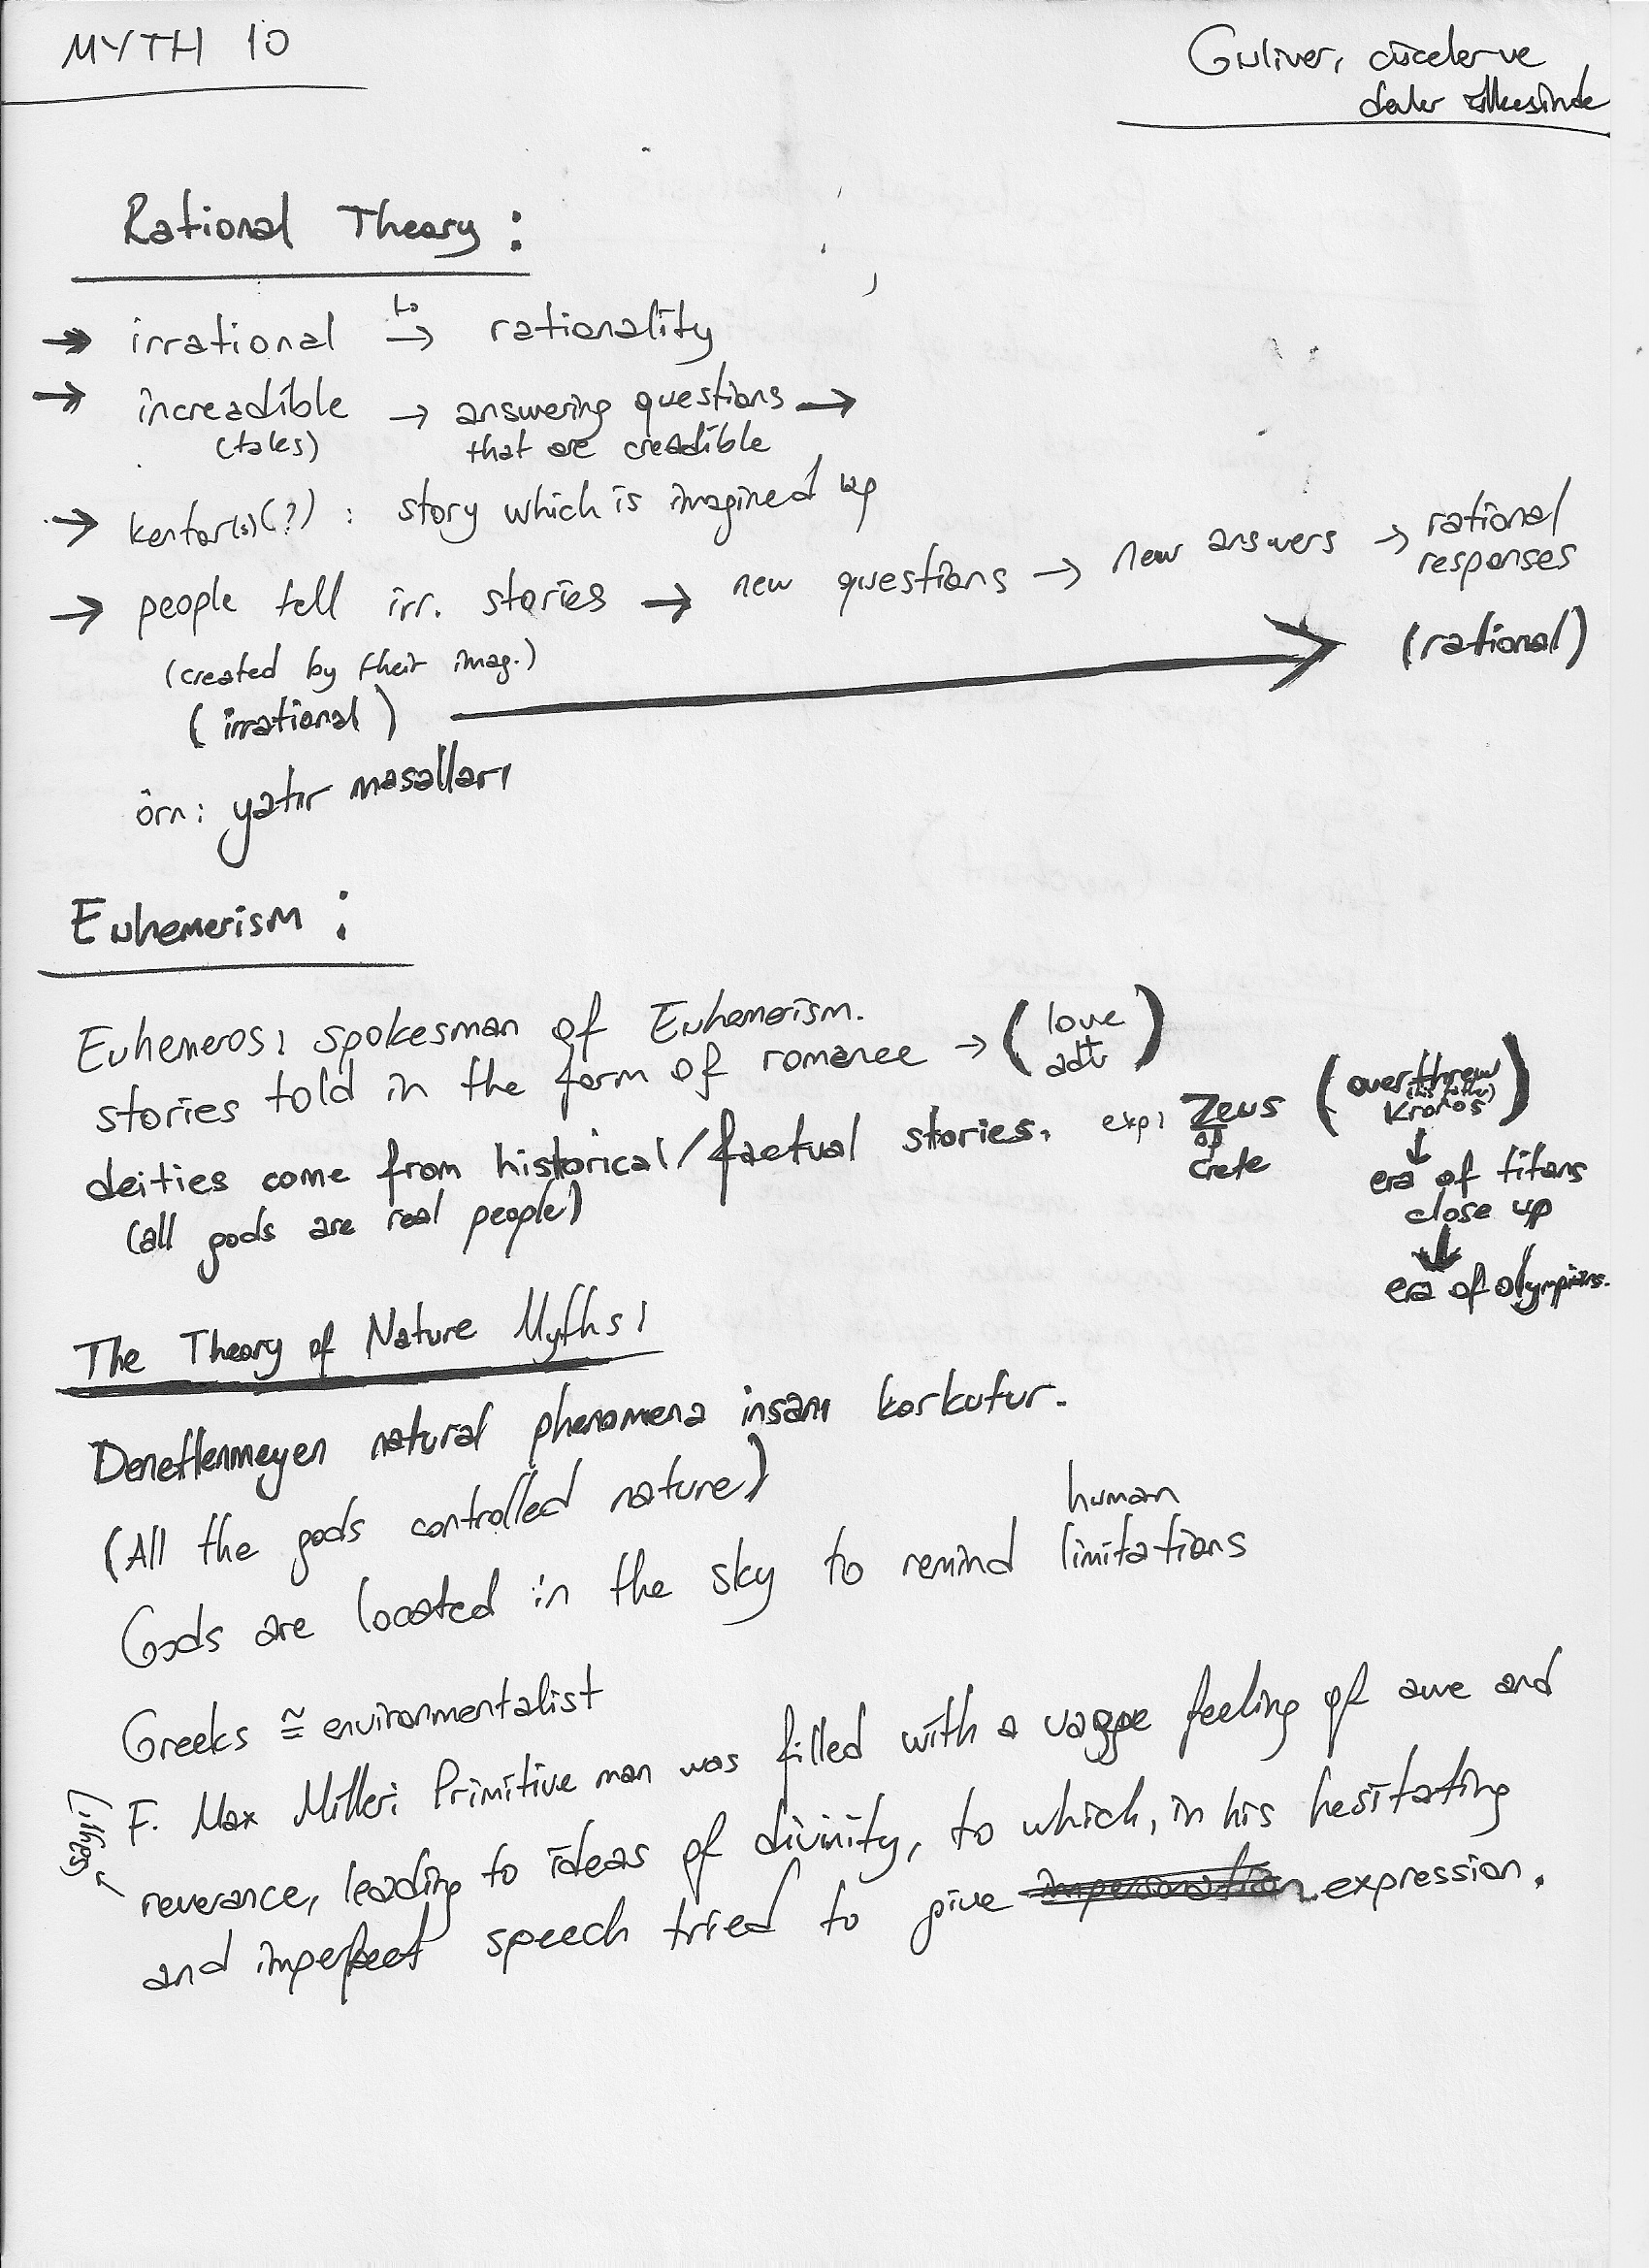 MYTH 10
Guliver, cüceler ve
devler ülkesinde
Rational Theory:
→ irrational to → rationality
→ increadible → answering questions →
(tales) that are creadible
→ kentor(s)(?) : story which is imagined up
→ people tell irr. stories → new questions → new answers → rational
responses
(created by their imag.)
(irrational) → (rational)
örn: yatır masalları
Euhemerism:
Euhemeros: spokesman of Euhemerism.
stories told in the form of romance → (love + adv)
deities come from historical/factual stories. exp: Zeus of Crete (overthrew (his father) Kronos)
↓
era of titans
close up
↓
era of olympians.
(all gods are real people)
The Theory of Nature Myths:
Denetlenmeyen natural phenomena insanı korkutur.
(All the gods controlled nature)
human
Gods are located in the sky to remind limitations
Greeks ≅ environmentalist
F. Max Miller: Primitive man was filled with a vague feeling of awe and
reverance, leading to ideas of divinity, to which, in his hesitating
and imperfect speech tried to give impersonation expression.